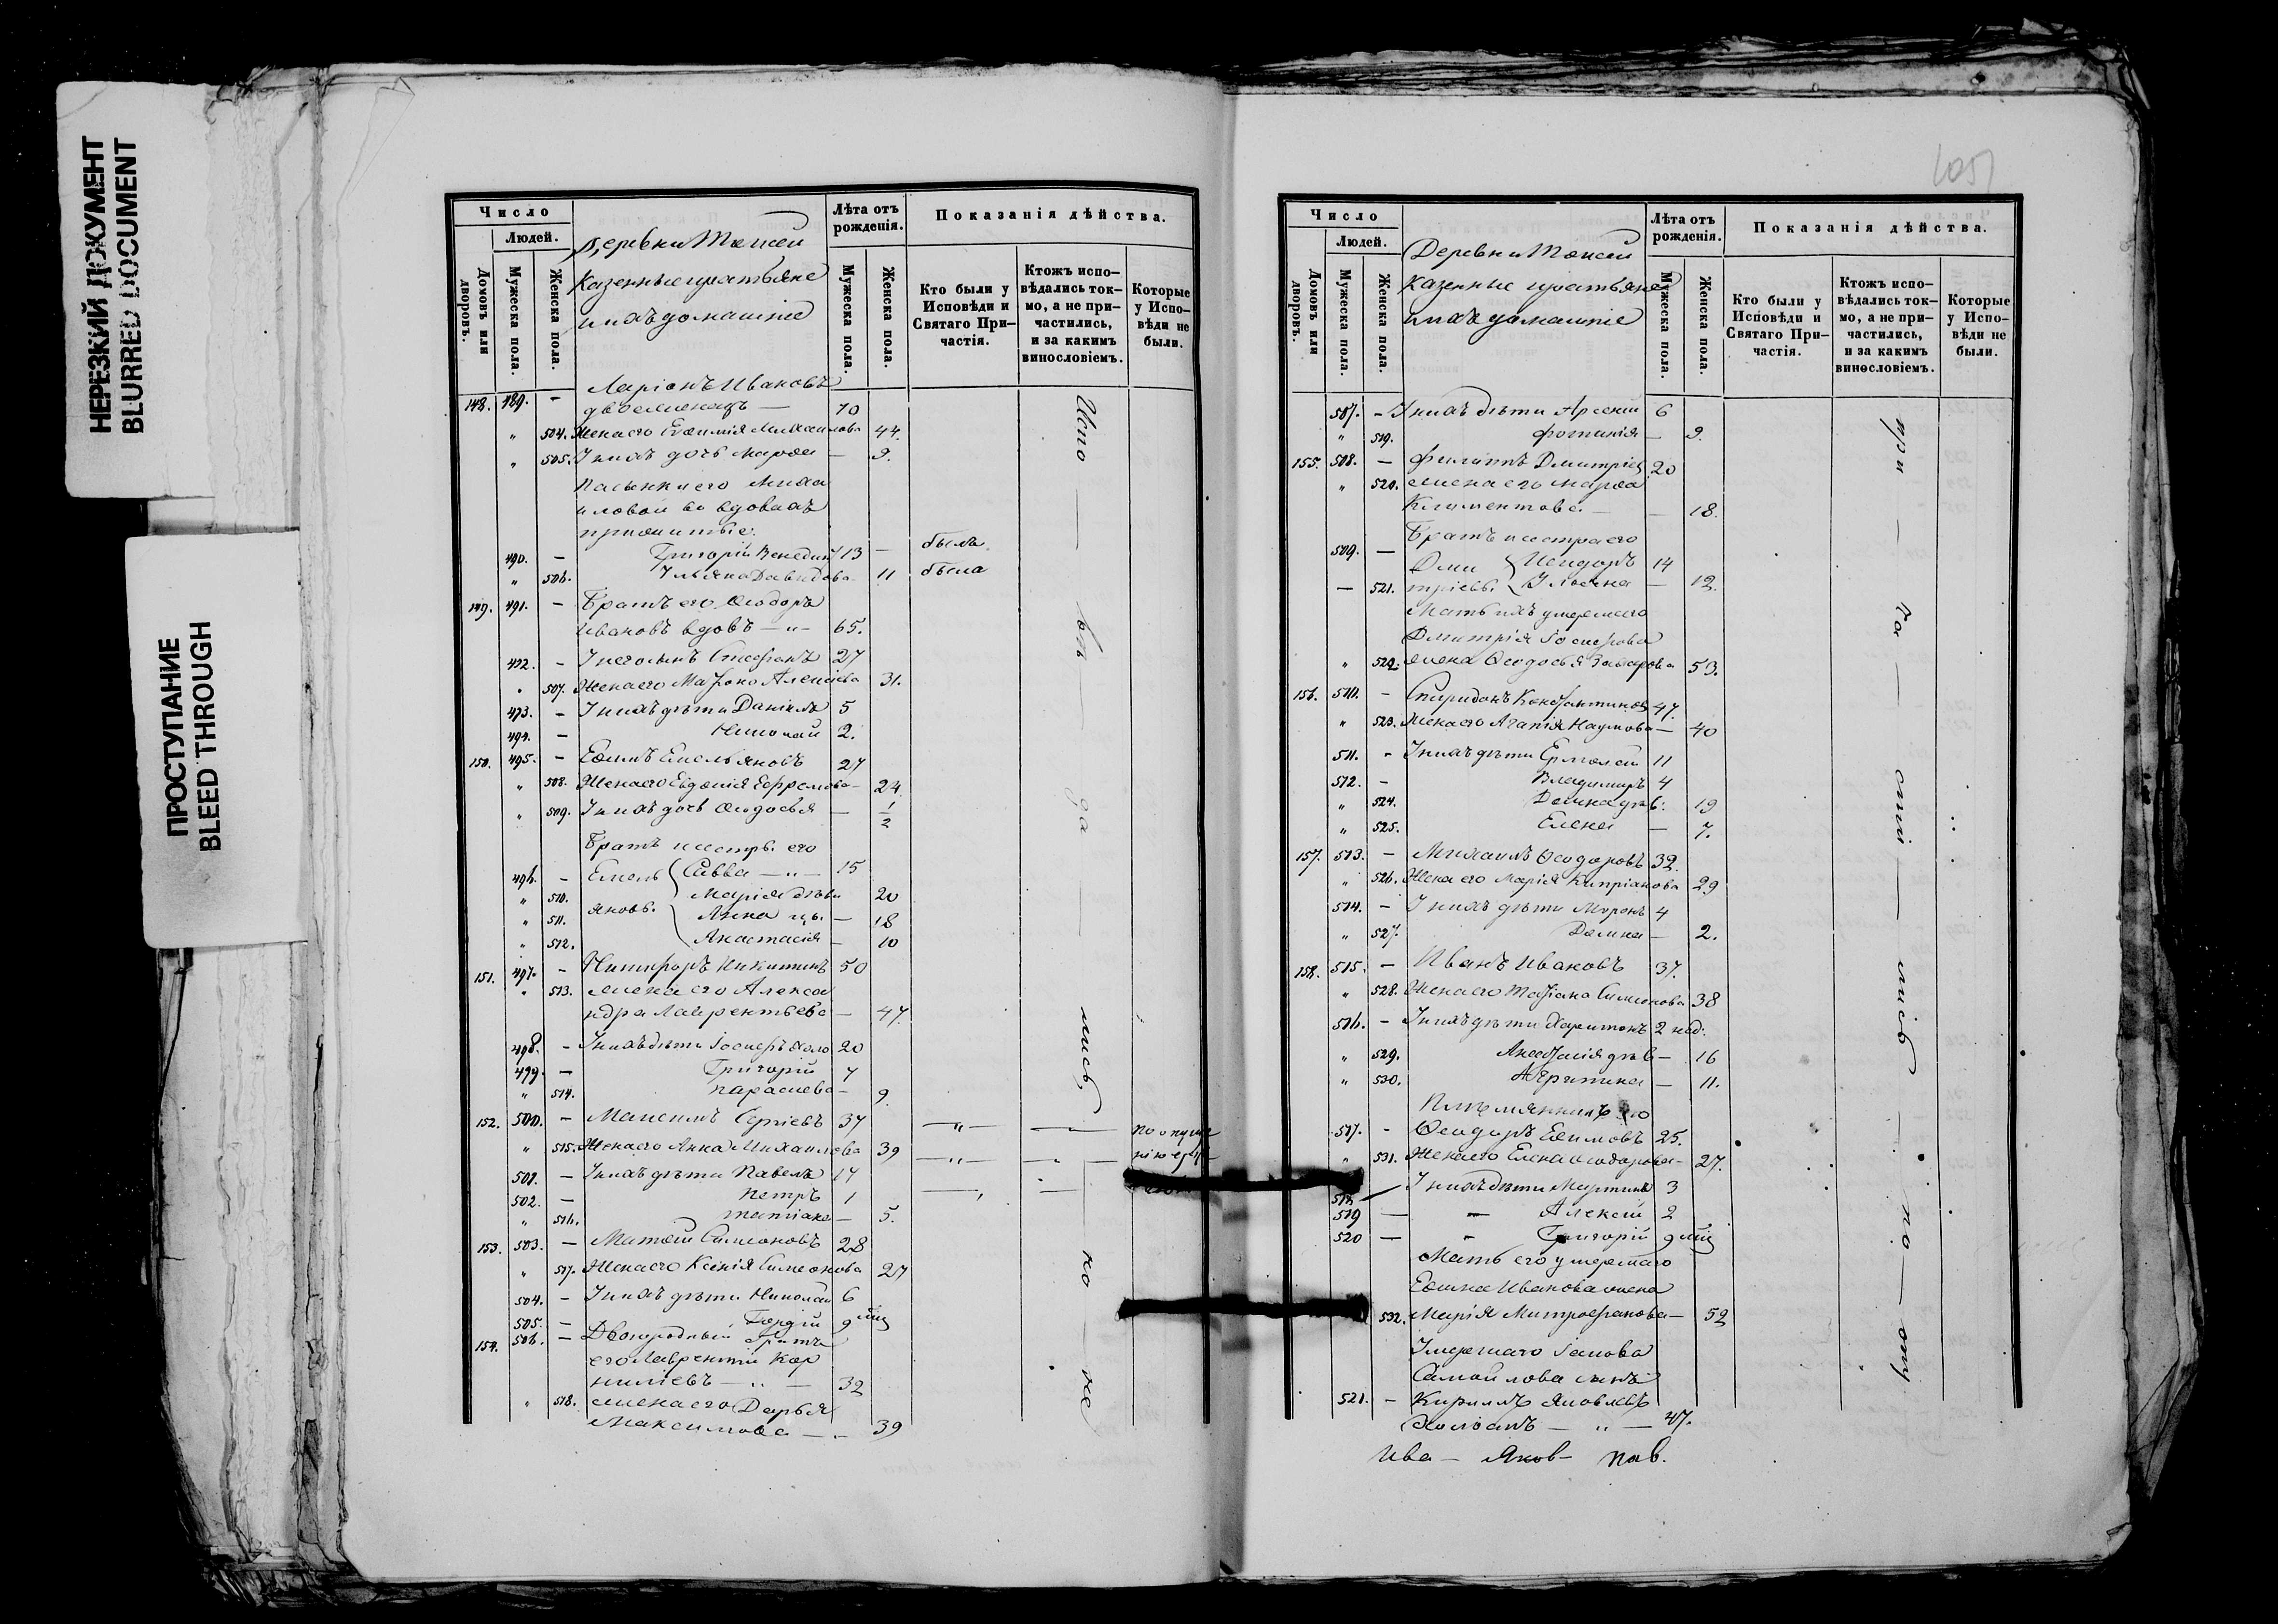 НЕРЕЗКИЙ ДОКУМЕНТ
BLURRED DOCUMENT
ПРОСТУПАНИЕ
BLEED THROUGH
Число
Людей.
Домовъ или дворовъ.
Мужеска пола.
Женска пола.
Деревни
Казенные крестьяне
и ихъ домашніе
Лѣта отъ рожденія.
Мужеска пола.
Женска пола.
Показанія дѣйства.
Кто были у Исповѣди и Святаго При-частія.
Ктожъ испо-вѣдались ток-мо, а не при-частились, и за какимъ винословіемъ.
Которые у Испо-вѣди не были.
148. 489. – Ларіонъ Ивановъ
двоеженецъ — 70
" 504. Жена его Евѳимія Михаилова 44.
" 505. У нихъ дочь Марѳа — 9.
Пасынки его Миха
иловой во вдовахъ
прижитые:
490. – Григорій 13 — былъ
" 506. Ульяна Давидова 11 была
149. 491. – Братъ его Ѳеодоръ
Ивановъ вдовъ — " — 65.
492. – У него сынъ Стефанъ 27
" 507. Жена его Матрона Алексіева 31.
493. – У нихъ дѣти Даніилъ 5
494. – Николай 2.
150. 495. – Евѳимъ Емельяновъ 27
" 508. Жена его Евдокія Ефремова 24
" 509. У нихъ дочь Ѳеодосья — 1/2
Братъ и сестр. его
496. – Емель Савва — " — 15
" 510. яновы. Марія дѣви 20
" 511. Анна цы. — 18
" 512. Анастасія — 10
151. 497. – Никифоръ Никитинъ 50
" 513. жена его Алекса
ндра Лаврентьева — 47.
498. – У нихъ дѣти Іосифъ холо 20
499. – Григорій 7
" 514. Параскева — 9
152. 500. – Максимъ Сергіевъ 37
" 515. Жена его Анна Михаилова 39
501. – У нихъ дѣти Павелъ 14
502. – Петръ 1
" 516. Татіана — 5.
153. 503. – Матѳей Симеоновъ 28
" 517. Жена его Ксенія Симеонова 27
504. – У нихъ дѣти Николай 6
505. – Гордій 9 мц
154. 506. – Двоюродный братъ
его Лаврентій Кор
ниліевъ — " — 32
" 518. жена его Дарья
Максимова — 39
Испо — вѣ — да — лись, но — не
Число
Людей.
Домовъ или дворовъ.
Мужеска пола.
Женска пола.
Деревни
Казенные крестьяне
и ихъ домашніе
Лѣта отъ рожденія.
Мужеска пола.
Женска пола.
Показанія дѣйства.
Кто были у Исповѣди и Святаго При-частія.
Ктожъ испо-вѣдались ток-мо, а не при-частились, и за какимъ винословіемъ.
Которые у Испо-вѣди не были.
507. – У нихъ дѣти Арсеній 6
" 519. Фотинія — 9.
155. 508. – Филиппъ Дмитріев 20
" 520. жена его Марѳа
Климентова. — 18.
Братъ и сестра его
509. – Дми Исидоръ 14
— 521. тріевы. Ульяна — 12.
Мать ихъ умершаго
Дмитрія Іосифова
" 522. жена Ѳеодосья Захарова 53.
156. 510. – Спиридонъ Константинов 47.
" 523. Жена его Агапія Наумова — 40
511. – У нихъ дѣти Ермолай 11
512. – Владимиръ 4
" 524. Домна дѣв: 19
" 525. Елена — 7.
157. 513. – Михаилъ Ѳеодоровъ 32.
" 526. Жена его Марія Кипріанова 29
514. – У нихъ дѣти Миронъ 4
" 527. Домна — 2.
158. 515. – Иванъ Ивановъ 37.
" 528. Жена его Татіана Симеонова 38
516. – У нихъ дѣти Харитонъ 2 нед:
" 529. Анастасія дѣв — 16
" 530. Агрипина — 11.
Племянникъ его
517. – Ѳеодоръ Евѳимовъ 25.
" 531. Жена его Елена Ѳеодорова — 27.
518 У нихъ дѣти Мартинъ 3
519 — Алексій 2
520 — Григорій 9 мц
Мать его умершаго
Евѳима Иванова жена
532. Марія Митрофанова — 52
Умершаго Іакова
Самойлова сынъ
521. – Кириллъ Яковлевъ
холостъ — " — 47.
при — ча — стились — по — опу
Ива — Яков — пав.